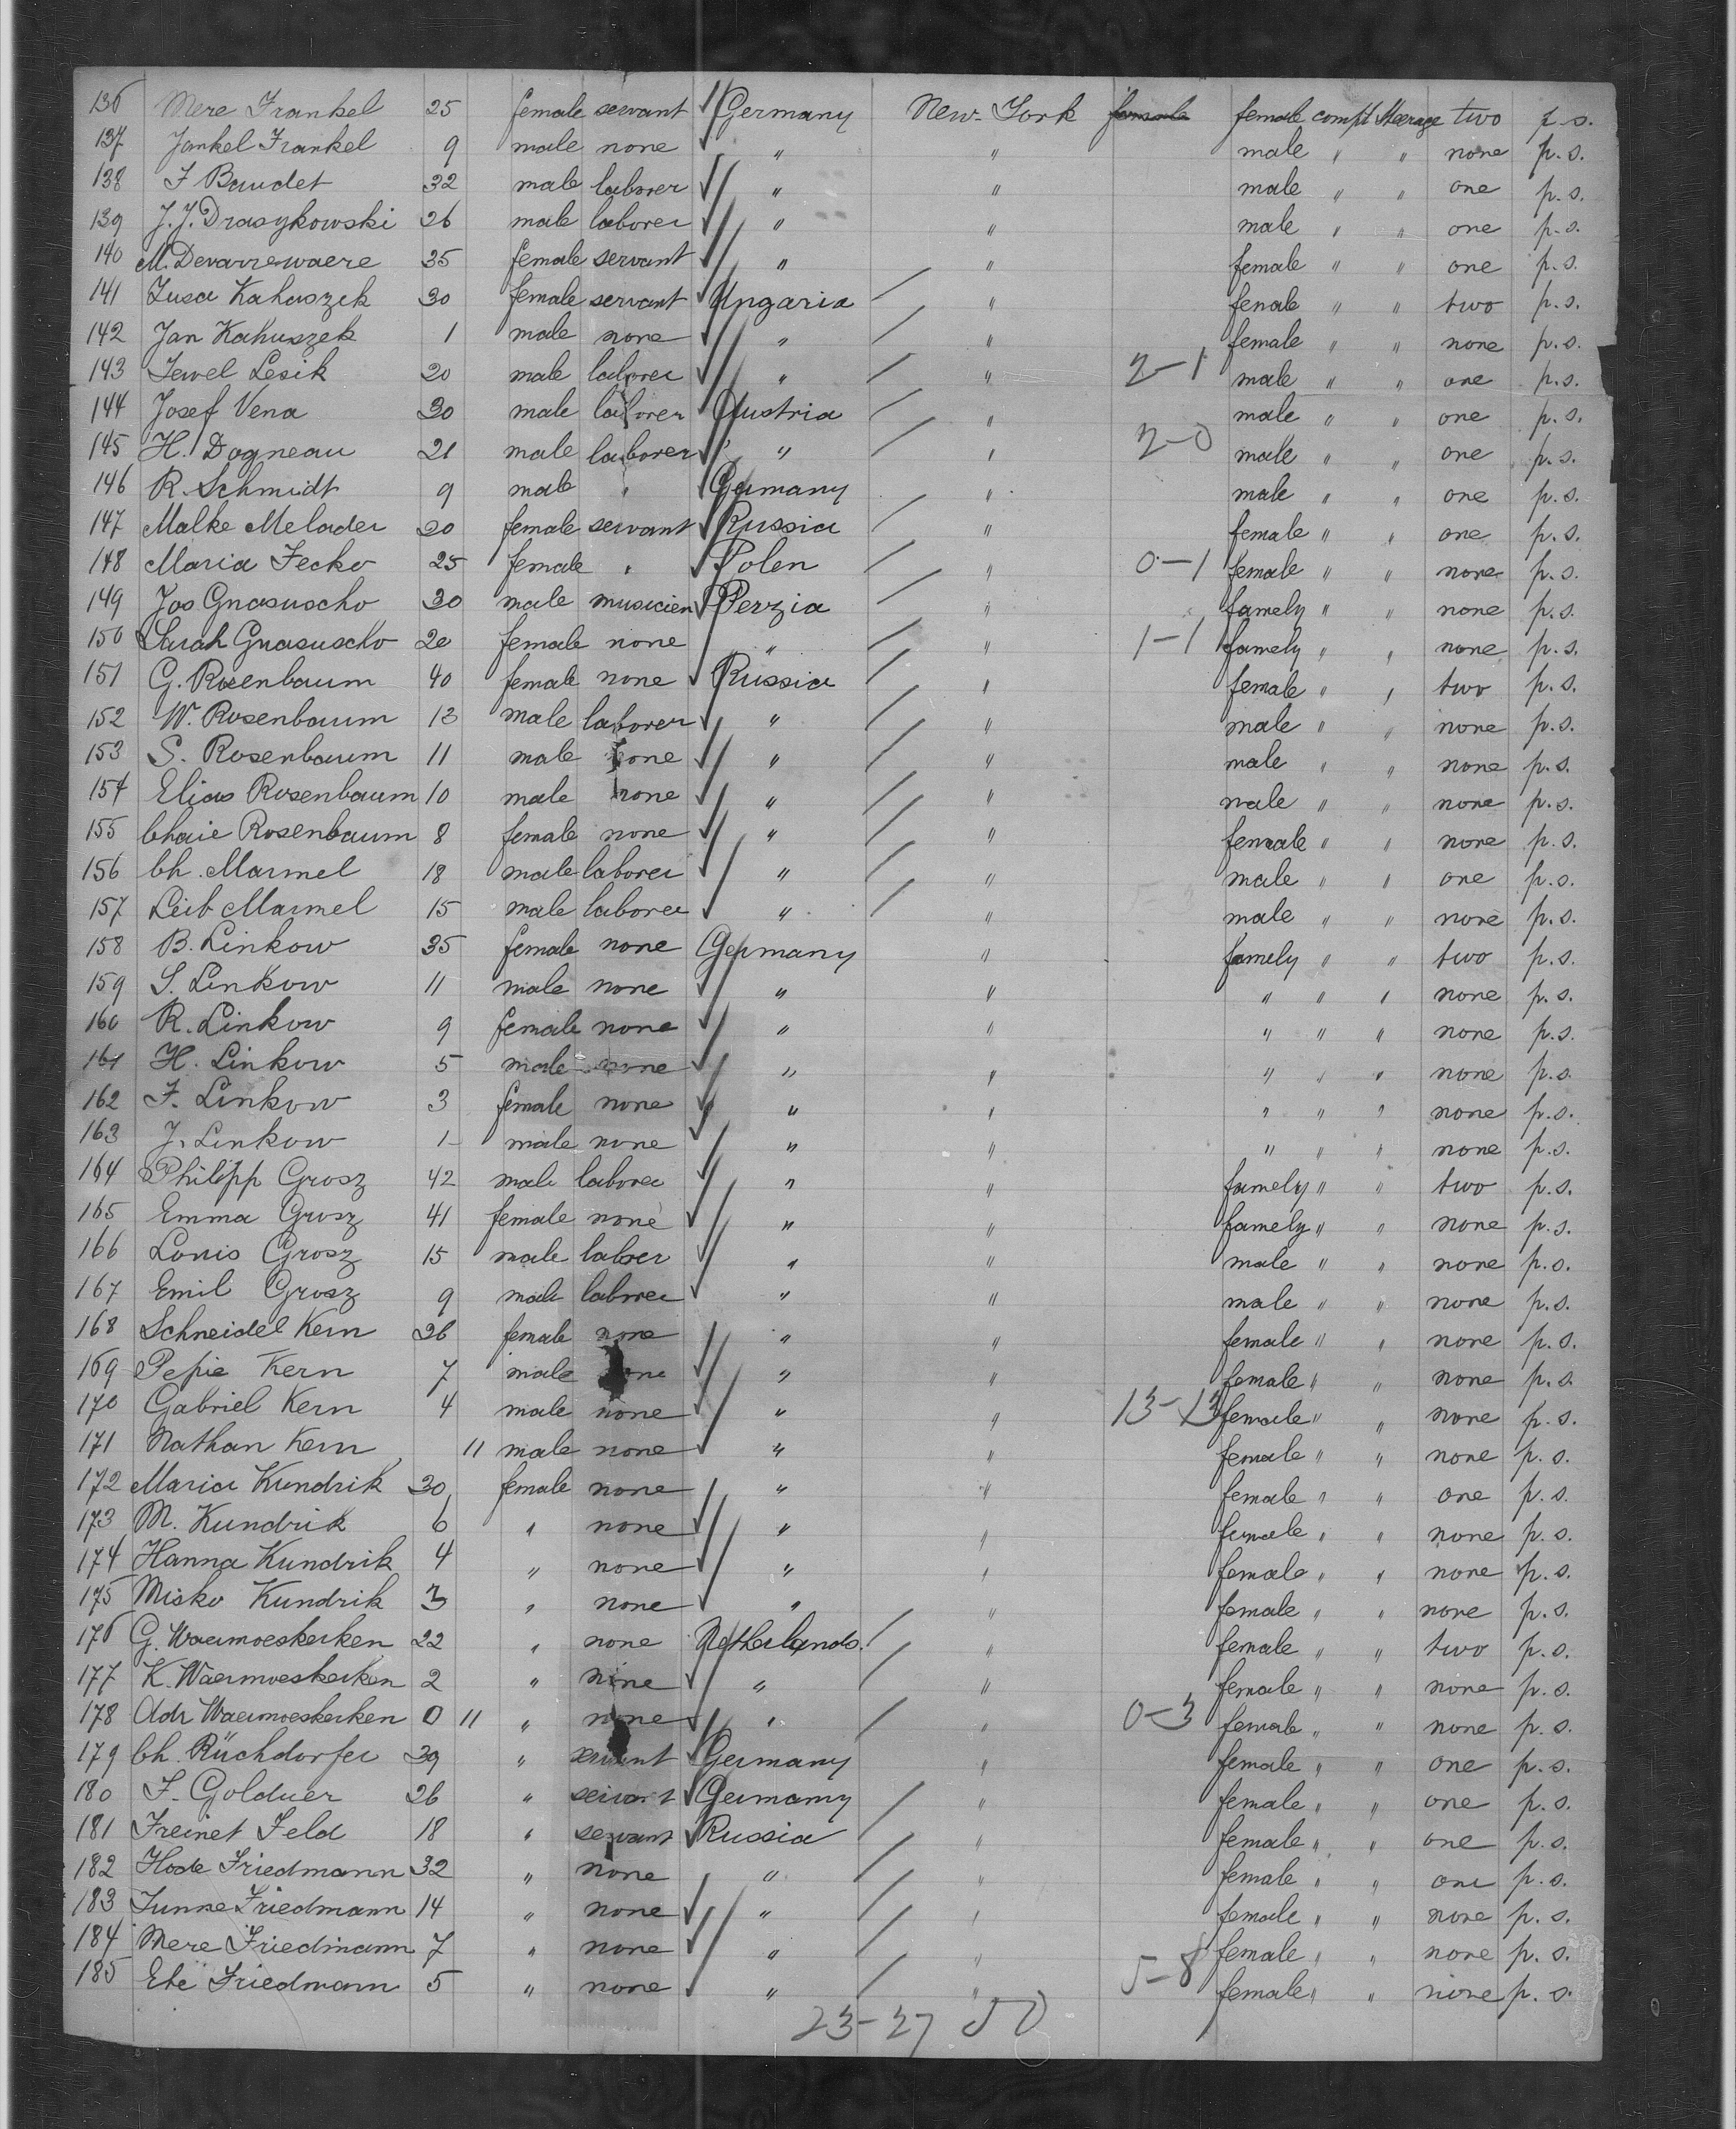 136 Mere Frankel 25 female servant Germany New-York female female compt Steerage two p.s.
137 Jankel Frankel 9 male none " " male " " none p.s.
138 F Baudet 32 male laborer " " male " " one p.s.
139 J.J. Drasykowski 26 male laborer " " male " " one p.s.
140 M. Devarrewaere 35 female servant " " female " " one p.s.
141 Zusa Kahuszek 30 female servant Ungaria " female " " two p.s.
142 Jan Kahuszek 1 male none " " female " " none p.s.
143 Jewel Lesik 20 male laborer " " 2-1 male " " one p.s.
144 Josef Vena 30 male laborer Austria " male " " one p.s.
145 H. Dogneau 21 male laborer " " 2-0 male " " one p.s.
146 R. Schmidt 9 male " Germany " male " " one p.s.
147 Malke Melader 20 female servant Russia " female " " one p.s.
148 Maria Fecko 25 female " Polen " 0-1 female " " none p.s.
149 Jos Gnasuscho 30 male musicien Perzia " famely " " none p.s.
150 Sarah Gnasuscho 20 female none " " 1-1 famely " " none p.s.
151 G. Rosenbaum 40 female none Russia " female " " two p.s.
152 W. Rosenbaum 13 male laborer " " male " " none p.s.
153 S. Rosenbaum 11 male none " " male " " none p.s.
154 Elias Rosenbaum 10 male none " " male " " none p.s.
155 Chaie Rosenbaum 8 female none " " female " " none p.s.
156 Ch. Marmel 18 male laborer " " male " " one p.s.
157 Leib Marmel 15 male laborer " " male " " none p.s.
158 B. Linkow 35 female none Germany " famely " " two p.s.
159 S. Linkow 11 male none " " " " " none p.s.
160 R. Linkow 9 female none " " " " " none p.s.
161 H. Linkow 5 male none " " " " " none p.s.
162 F. Linkow 3 female none " " " " " none p.s.
163 J. Linkow 1 male none " " " " " none p.s.
164 Philipp Grosz 42 male laborer " " famely " " two p.s.
165 Emma Grosz 41 female none " " famely " " none p.s.
166 Louis Grosz 15 male laboer " " male " " none p.s.
167 Emil Grosz 9 male laborer " " male " " none p.s.
168 Schneidel Kern 26 female none " " female " " none p.s.
169 Pepie Kern 7 male none " " female " " none p.s.
170 Gabriel Kern 4 male none " " 13-13 female " " none p.s.
171 Nathan Kern 11 male none " " female " " none p.s.
172 Maria Kundrik 30 female none " " female " " one p.s.
173 M. Kundrik 6 " none " " female " " none p.s.
174 Hanna Kundrik 4 " none " " female " " none p.s.
175 Misko Kundrik 3 " none " " female " " none p.s.
176 G. Waermoeskerken 22 " none Netherlands. " female " " two p.s.
177 K. Waermoeskerken 2 " none " " female " " none p.s.
178 Adr Waermoeskerken 0 11 " none " " 0-3 female " " none p.s.
179 Ch. Rüchdorfer 39 " servant Germany " female " " one p.s.
180 F. Golduer 26 " servant Germany " female " " one p.s.
181 Freinet Feld 18 " servant Russia " female " " one p.s.
182 Hode Friedmann 32 " none " " female " " one p.s.
183 Sunne Friedmann 14 " none " " female " " none p.s.
184 Mere Friedmann 7 " none " " female " " none p.s.
185 Ete Friedmann 5 " none " " 5-8 female " " none p.s.
23-27 50